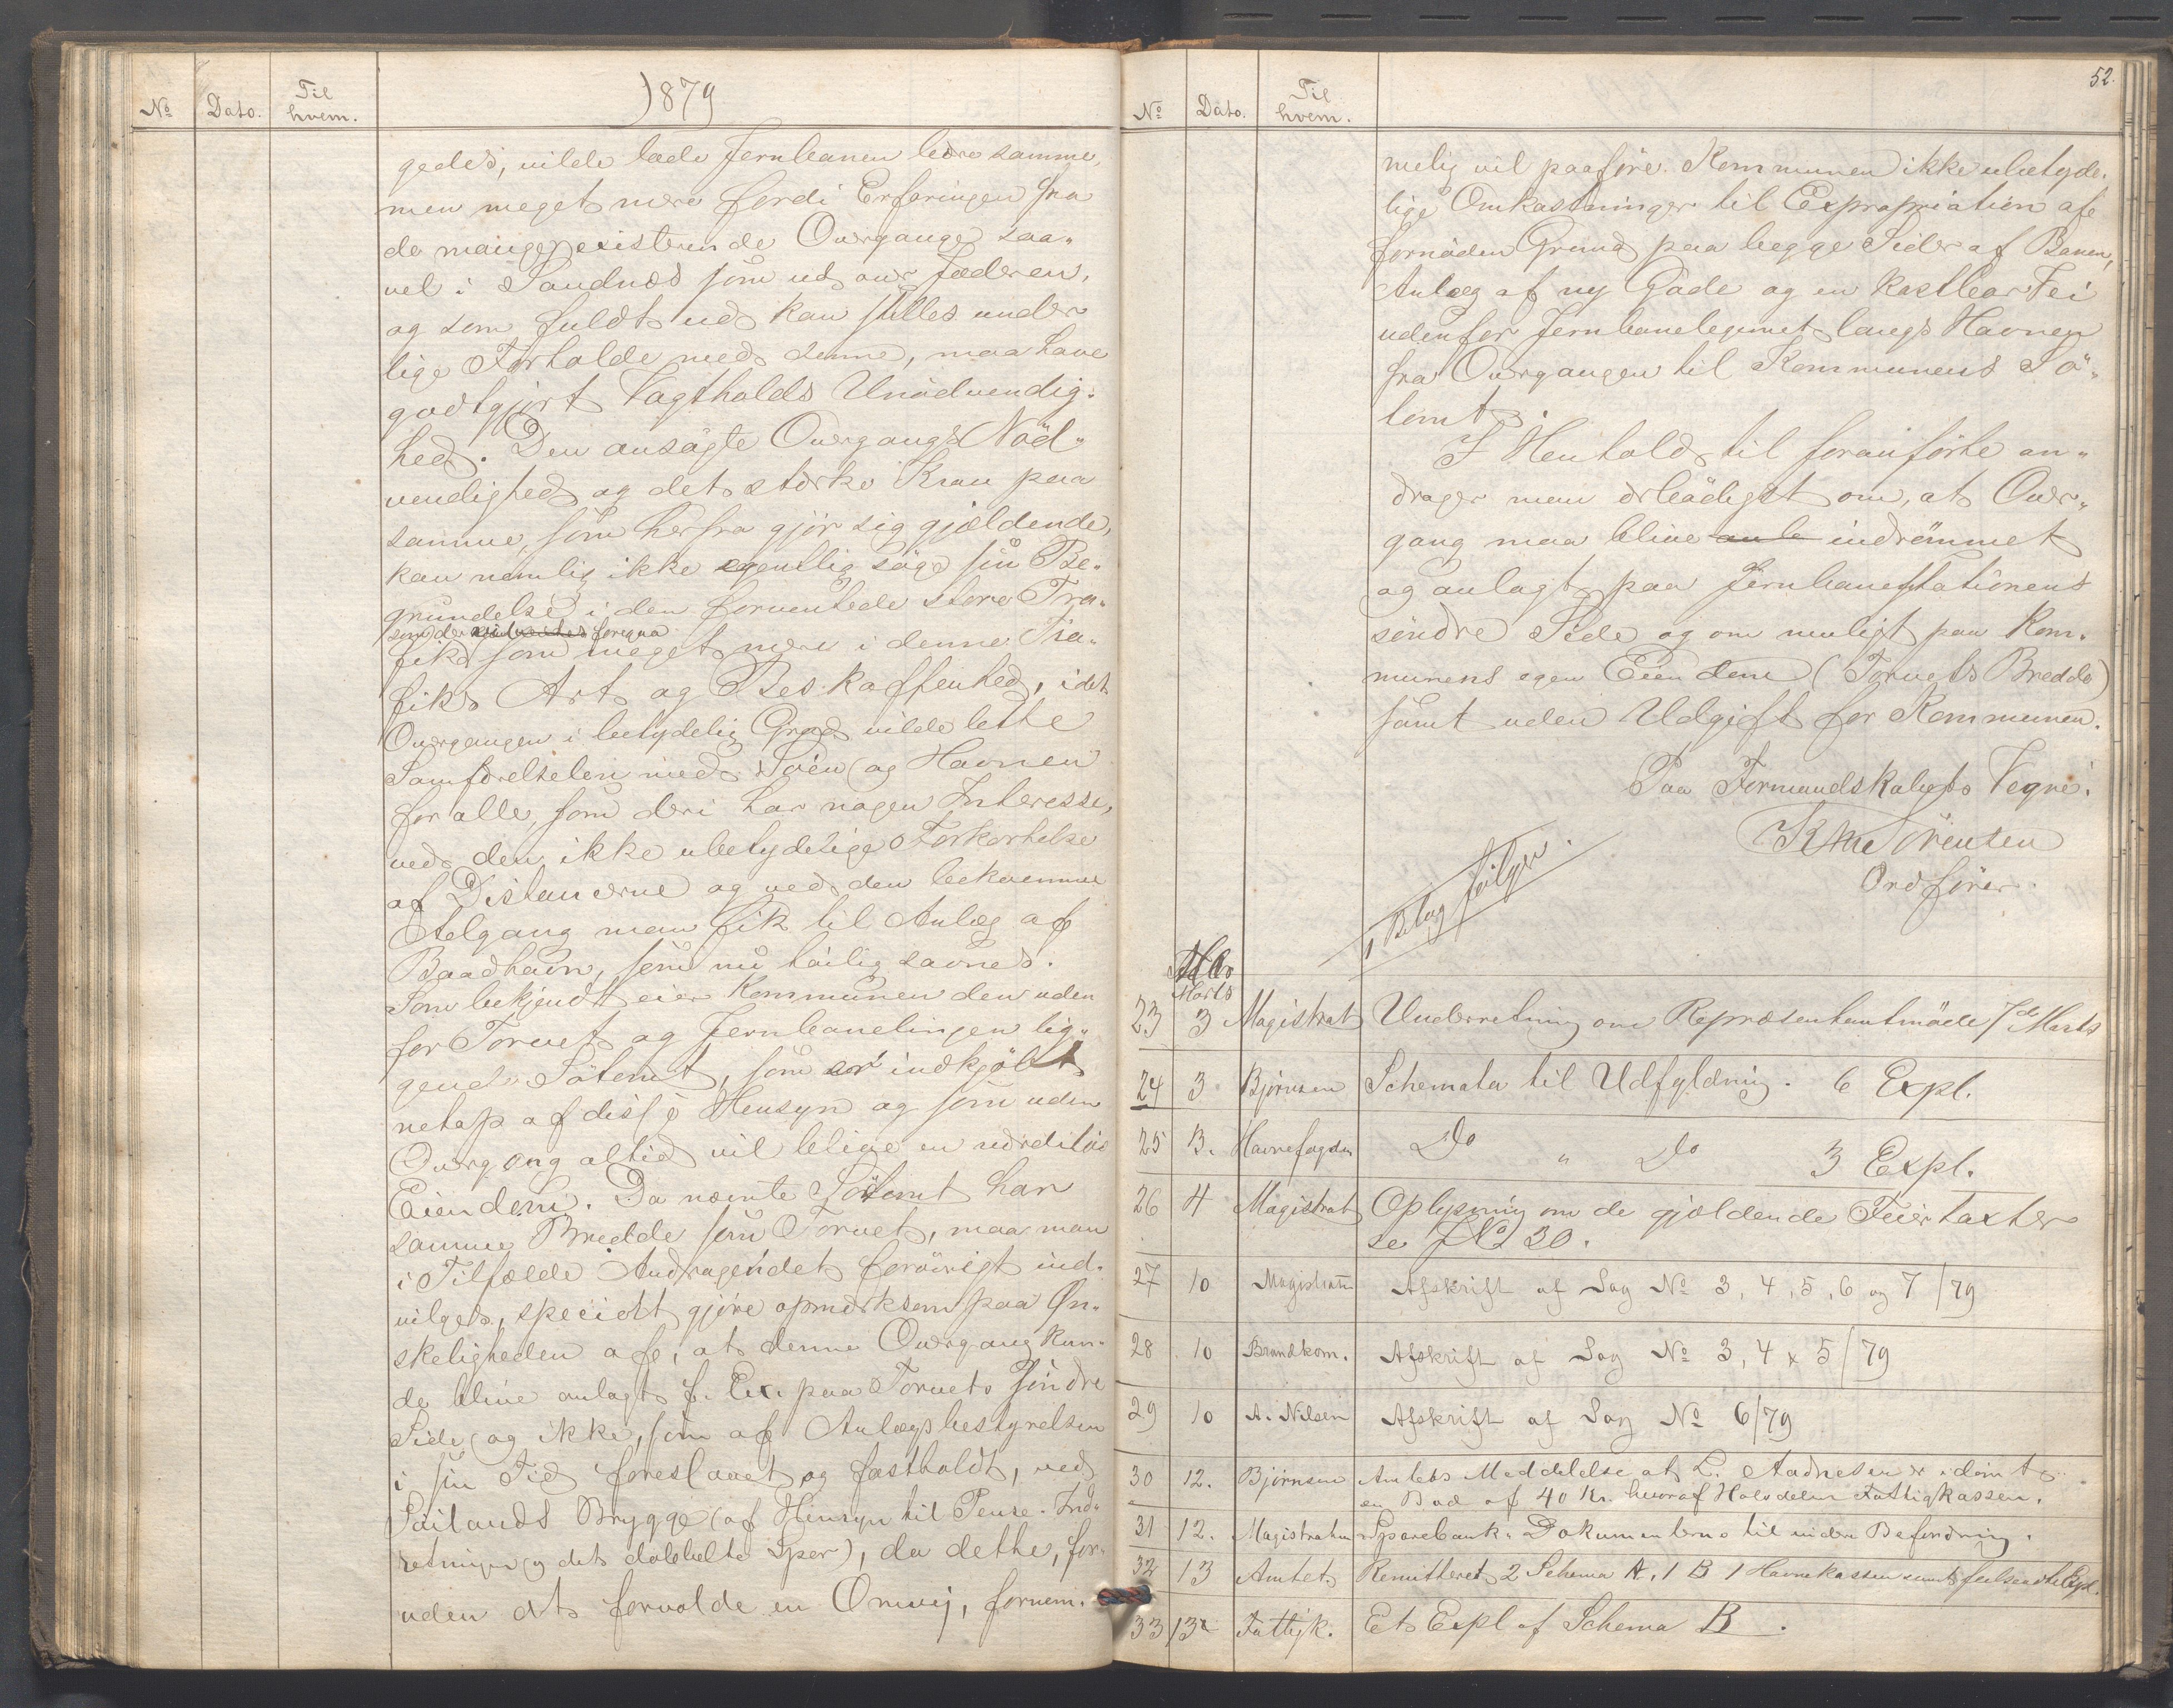 No Dato. Til hvem. 1879
gedes, vilde lade Jernbanen bære samme,
men meget mere fordi Erfaringen fra
de mange existerende Overgange saa-
vel i Sandnæs som ud over Jæderen,
og som fuldt ud kan stilles under
lige Forholde med denne, maa have
godtgjort Vagtholds Unödvendig-
hed. Den ansögte Overgangs Nöd-
vendighed og det stærke Krav paa
samme, som herfra gjör sig gjældende,
kan nemlig ikke egentlig söge sin Be-
grundelse i den forventede store Tra-
som der foregaa
fik som meget mere i denne Tra-
fiks Art og Beskaffenhed, idet
Overgangen i betydelig Grad vilde lette
Samfærdselen med Söen og Havnen
for alle, som deri har nogen Interesse,
ved den ikke ubetydelige Forkortelse
af Distancerne og ved den bekvemme
Adgang man fik til Anlæg af
Baadhavn, som nu höilig savnes.
Som bekjendt eier Kommunen den uden
for Torvet og Jernbanelinjen lig-
gende Sötomt, som er indkjöbt
netop af disse Hensyn og som uden
Overgang altid vil blive en værdilös
Eiendom. Da nævnte Sötomt har
samme Bredde som Torvet, maa man
i Tilfælde Andragendet forövrigt ind-
vilges, specielt gjöre opmærksom paa Øn-
skeligheden af, at denne Overgang kun-
de blive anlagt f. Ex. paa Torvets söndre
Side og ikke, som af Anlægsbestyrelsen
i sin Tid foreslaaet og fastholdt, ved
Soilands Brygge (af Hensyn til Pense-Ind-
retningen og det dobbelte Spor), da dette, for-
uden at forvolde en Omvej, fornem-
52.
No Dato. Til hvem.
melig vil paaföre Kommunen ikke ubetyde-
lige Omkostninger til Expropriation af
fornöden Grund paa begge Sider af Banen,
Anlæg af ny Gade og en kostbar Vei
udenfor Jernbanelegemet langs Havnen
fra Overgangen til Kommunens Sö-
tomt.
I Henhold til foranförte an-
drager man ærbödigst om, at Over-
gang maa blive anla indrömmet
og anlagt paa Jernbanestationens
söndre Side og om muligt paa Kom-
munens egen Eiendom (Torvets Bredde)
samt uden Udgift for Kommunen.
Paa Formandskabets Vegne:
Sörensen
Ordförer.
1 Bilag fölger.
Marts
23 3 Magistrat Underretning om Repræsentantmöde 7de Marts
24 3 Björnsen Schemata til Udfyldning. 6 Expl.
25 3. Havnefogden Do " Do 3 Expl.
26 4 Magistrat Oplysning om de gjældende Feiertaxter
se JNo 30.
27 10 Magistraten Afskrift af Sag No 3, 4, 5, 6 og 7/79
28 10 Brandkom. Afskrift af Sag No 3, 4 & 5/79
29 10 A. Nilsen Afskrift af Sag No 6/79
30 12. Björnsen Amtets Meddelelse at L. Aadnesen er idömt
en Bod af 40 Kr. hvoraf Halvdelen Fattigkassen.
31 12. Magistraten Sparebank-Dokumenterne til videre Befordring.
32 13 Amtet Remitteret 2 Schema A, 1 B 1 Havnekassen samt Expl.
33 13 Fattigk. Et Expl af Schema B.